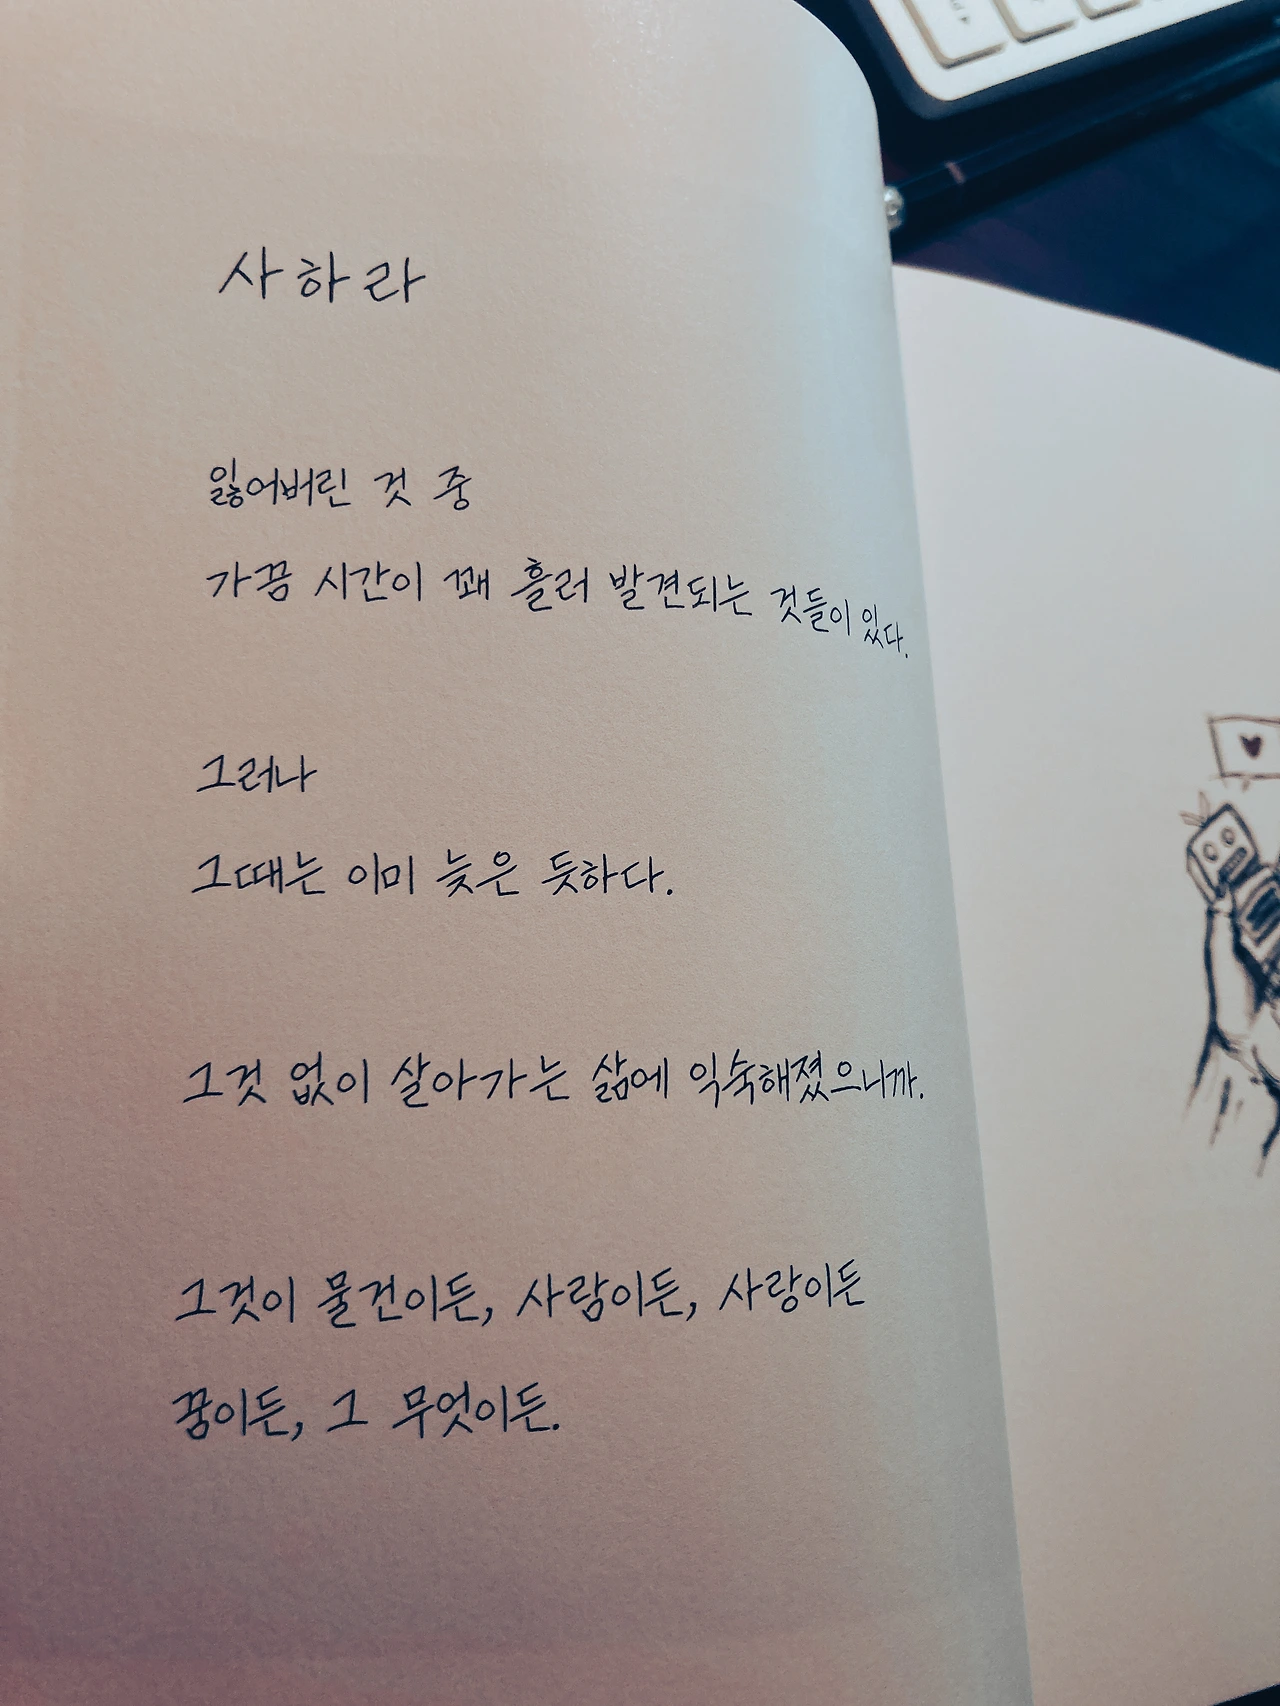 사하라
잃어버린 것 중
가끔 시간이 꽤 흘러 발견되는 것들이 있다.
그러나
그때는 이미 늦은 듯하다.
그것 없이 살아가는 삶에 익숙해졌으니까.
그것이 물건이든, 사람이든, 사랑이든
꿈이든, 그 무엇이든.